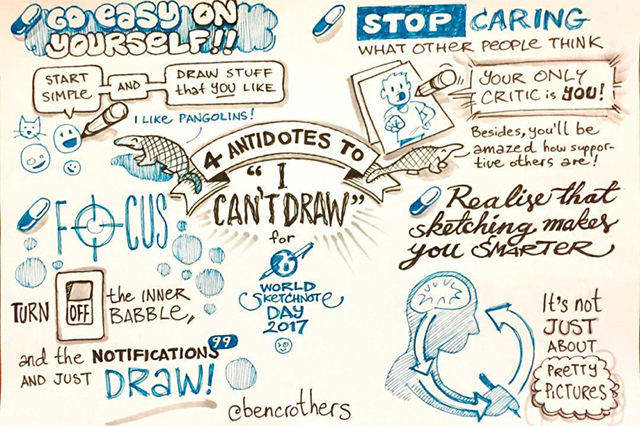 GO EASY ON
YOURSELF!!
START
SIMPLE
AND
DRAW STUFF
that YOU LIKE
I LIKE PANGOLINS!
STOP CARING
WHAT OTHER PEOPLE THINK
YOUR ONLY
CRITIC is YOU!
Besides, you'll be
amazed how suppor-
tive others are!
4 ANTIDOTES TO
"I
CAN'T DRAW"
for
WORLD
SKETCHNOTE
DAY
2017
FOCUS
TURN
OFF
the INNER
BABBLE,
and the NOTIFICATIONS
99
AND JUST DRAW!
Realise that
sketching makes
you SMARTER
It's not
JUST
ABOUT
PRETTY
PICTURES
@bencrothers